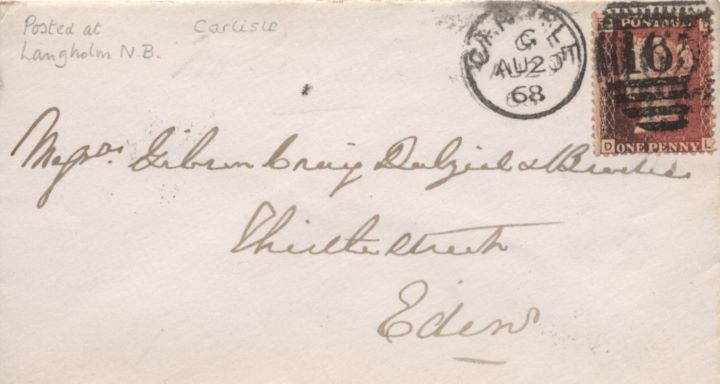 Posted at
Langholm N.B.
Carlisle
CARLISLE
G
AU 20
68
POSTAGE
163
D ONE PENNY L
Messrs Gibson Craig Dalziel & Brodies
Thistle Street
Edinr